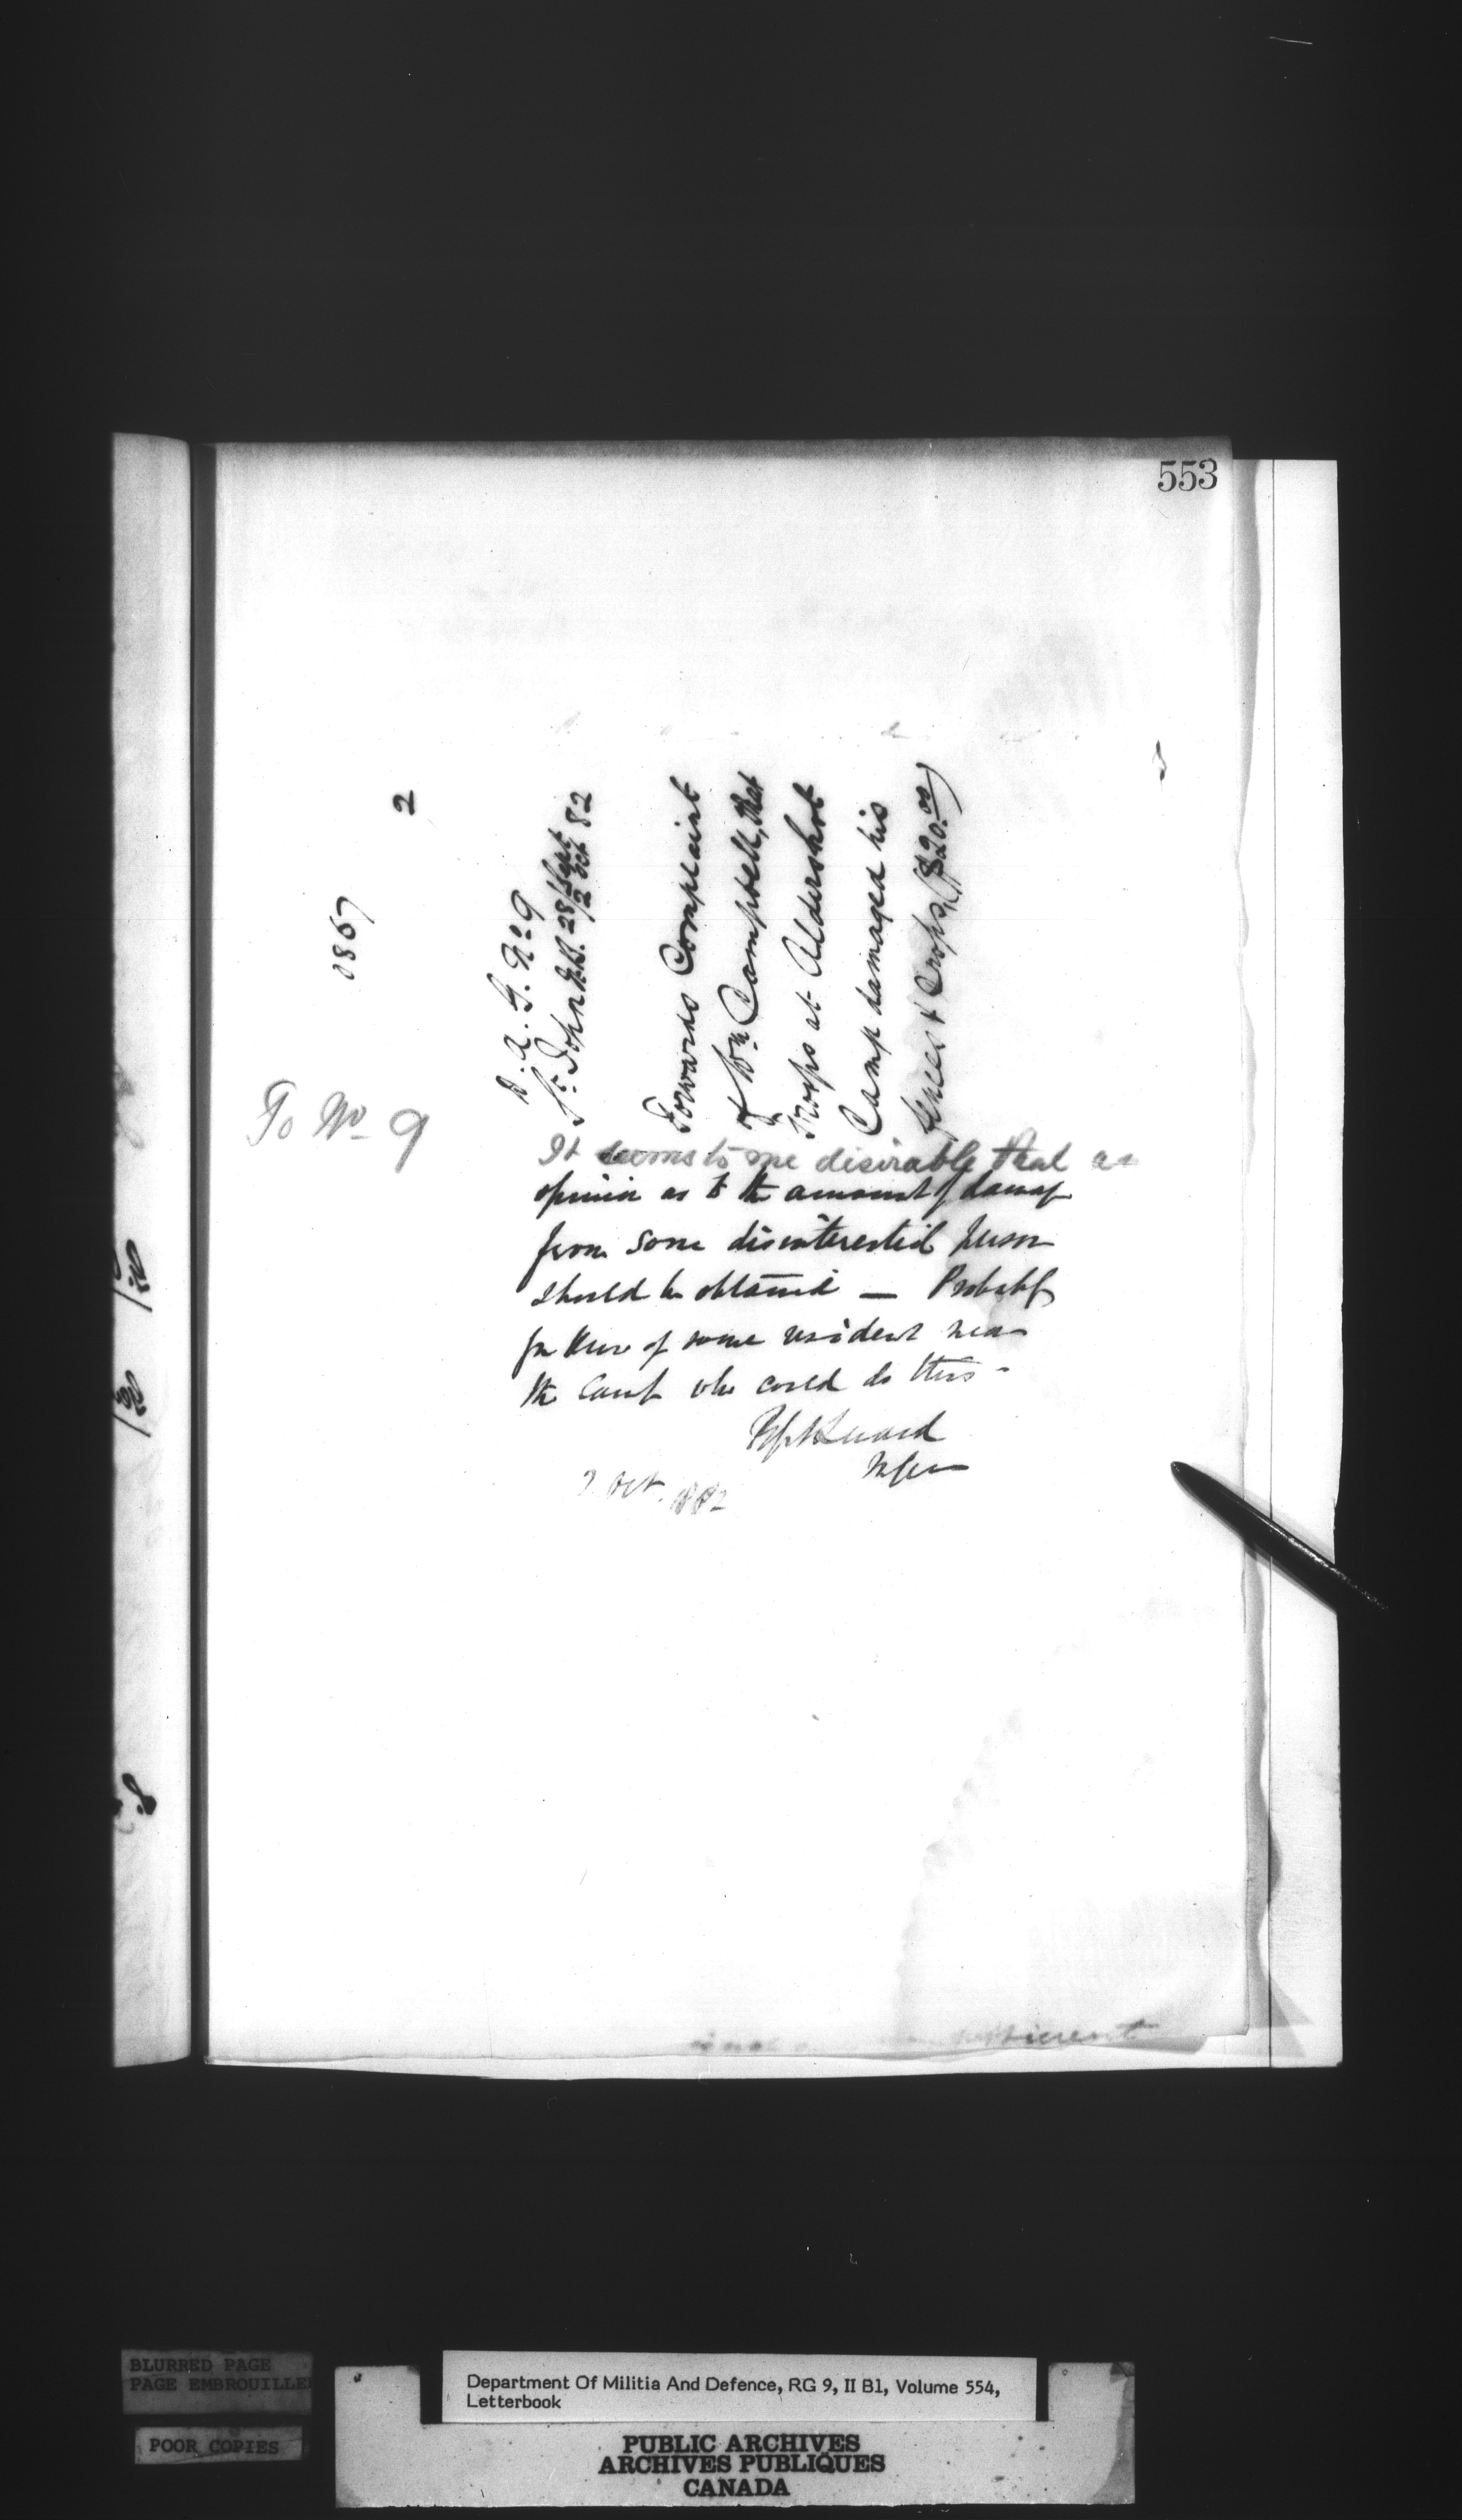 553
2
0867
D. A. G. No 9
St. John N.B. 28 Sept
2 Oct 82
Forwards Complaint
of Wm Campbell, that
Troops at Aldershot
Camp damaged his
fences & Crops, ($20.00)
To No 9
It seems to me desirable that an
opinion as to the amount of damage
from some disinterested person
should be obtained — Probably
you know of some resident near
the Camp who could do this -
Luard
MGen
2 Oct. 1882
BLURRED PAGE
PAGE EMBROUILLE
POOR COPIES
Department Of Militia And Defence, RG 9, II B1, Volume 554,
Letterbook
PUBLIC ARCHIVES
ARCHIVES PUBLIQUES
CANADA